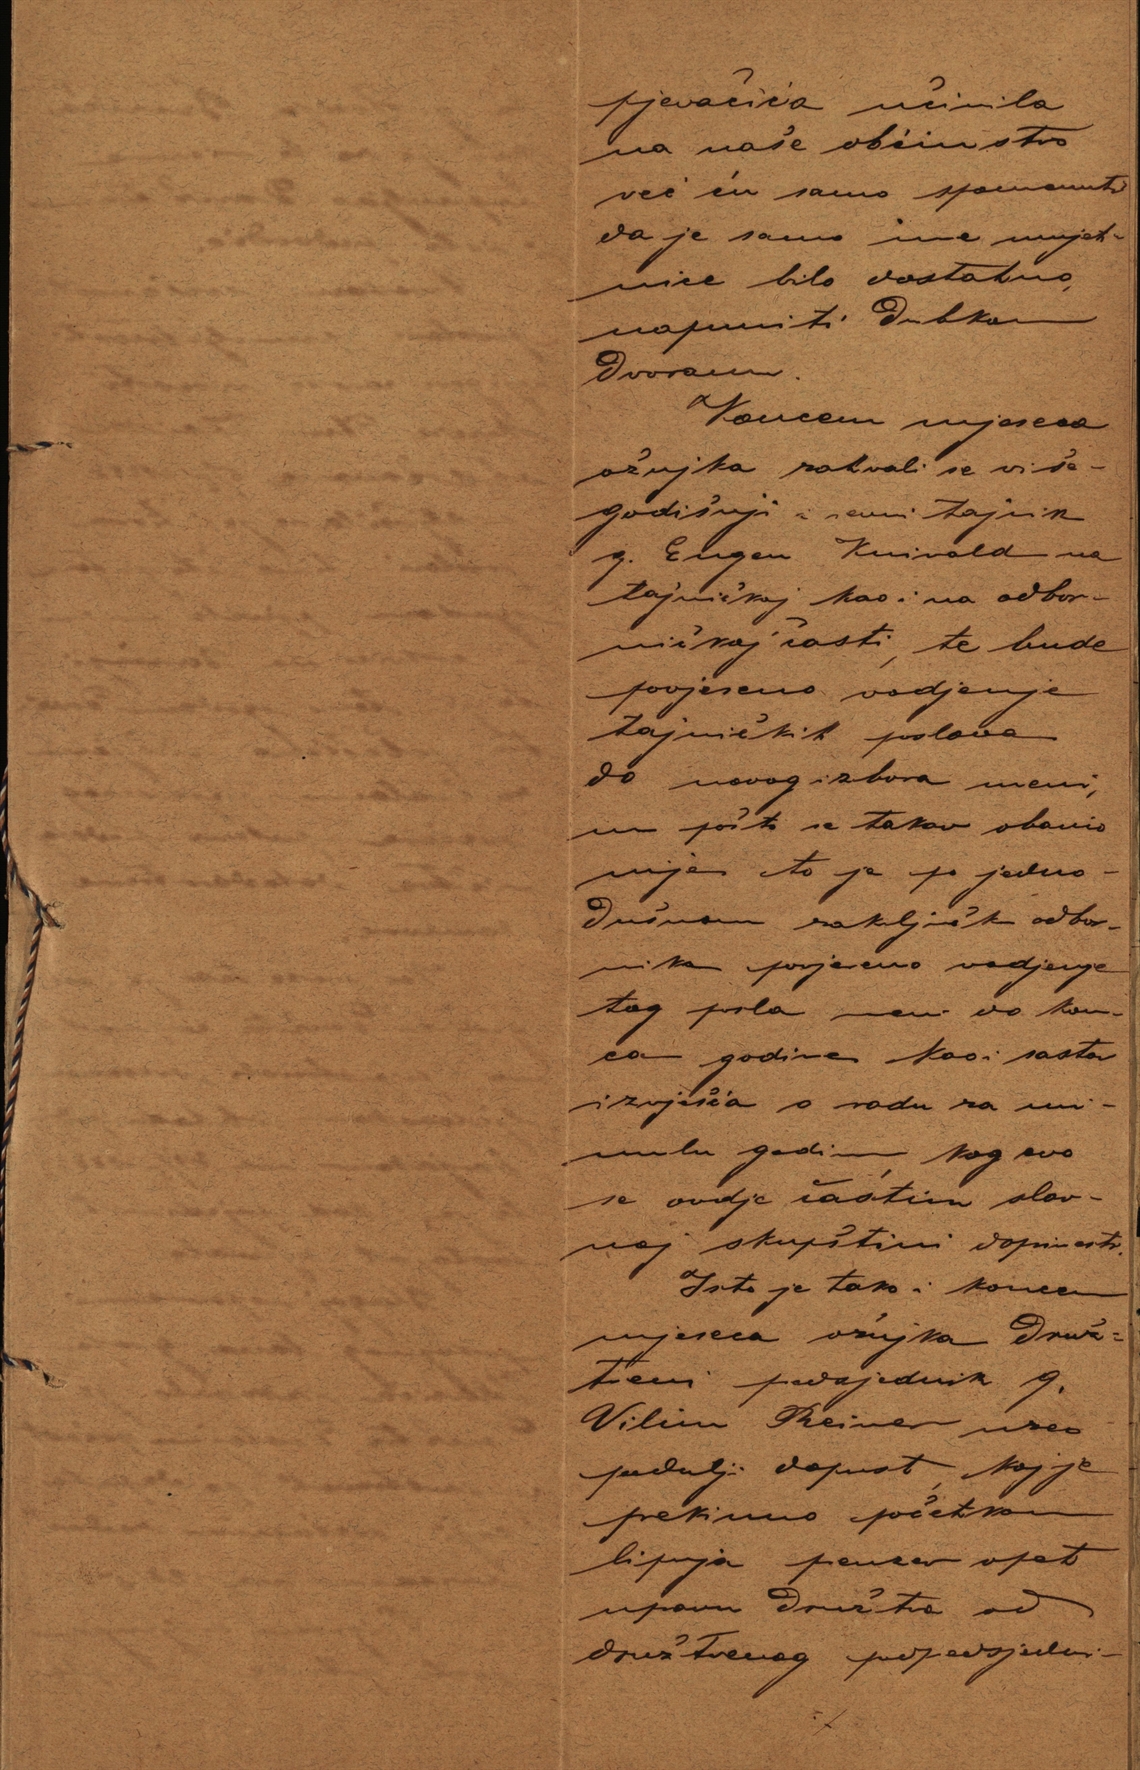 pjevačića učinila
na naše občinstvo
već ću samo spomenuti
da je samo ime umjet-
nice bilo dostatno,
napuniti dubkom
dvoranu.
Koncem mjeseca
ožujka zahvali se više-
godišnji i revni tajnik
g. Eugen Knivald na
tajničkoj kao i na odbor-
ničkoj časti, te bude
povjereno vodjenje
tajničkih poslova
do novog izbora meni,
no pošto se takav obavio
nije to je po jedno-
dušnom zaključku odbor-
nika povjereno vodjenje
tog posla meni do kon-
ca godine kao i sastav
izvješća o radu za mi-
nulu godinu, kog evo
se ovdje častim slav-
noj skupštini doprinesti.
Isto je tako i koncem
mjeseca ožujka druž-
tveni predsjednik g.
Vilim Reiner uzeo
podulji dopust, koj je
prekinuo početkom
lipnja preuzev opet
upravu družtva od
družtvenog podpredsjedni-